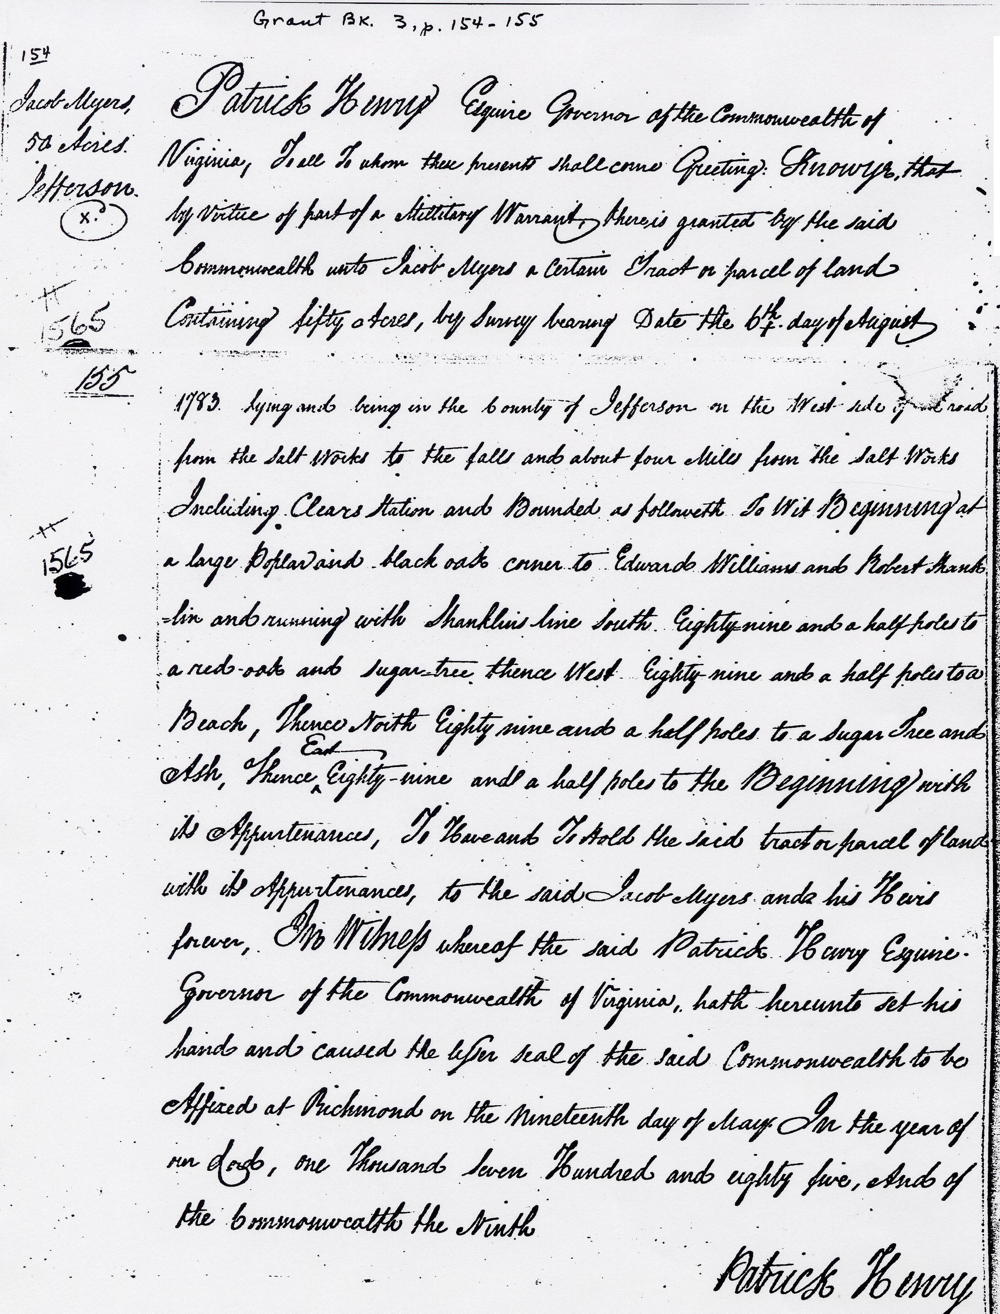 Grant Bk. 3, p. 154-155
154
Jacob Myers,
50 Acres.
Jefferson.
X.
1565
155
1565
Patrick Henry Esquire Governor of the Commonwealth of
Virginia, To all To whom these presents shall come Greeting: Know ye, that
by Virtue of part of a Millitary Warrant, there is granted by the said
Commonwealth unto Jacob Myers a Certain Tract or parcel of land
Containing fifty Acres, by Survey bearing Date the 6th. day of August
1783. lying and being in the County of Jefferson on the West side of road
from the Salt Works to the falls and about four Miles from the Salt Works
Including Clears Station and Bounded as followeth To Wit Beginning at
a large Poplar and black oak corner to Edward Williams and Robert Shank
=lin and running with Shanklins line South Eighty nine and a half poles to
a red-oak and sugar=tree thence West Eighty nine and a half poles to a
Beach, Thence North Eighty nine and a half poles to a sugar Tree and
Ash, Thence East Eighty-nine and a half poles to the Beginning with
its Appurtenances, To Have and To Hold the said tract or parcel of land
with its Appurtenances, to the said Jacob Myers and his Heirs
forever, In Witness whereof the said Patrick Henry Esquire
Governor of the Commonwealth of Virginia, hath hereunto set his
hand and caused the lesser seal of the said Commonwealth to be
Affixed at Richmond on the Nineteenth day of May In the year of
our Lord, one Thousand Seven Hundred and eighty five, And of
the Commonwealth the Ninth
Patrick Henry